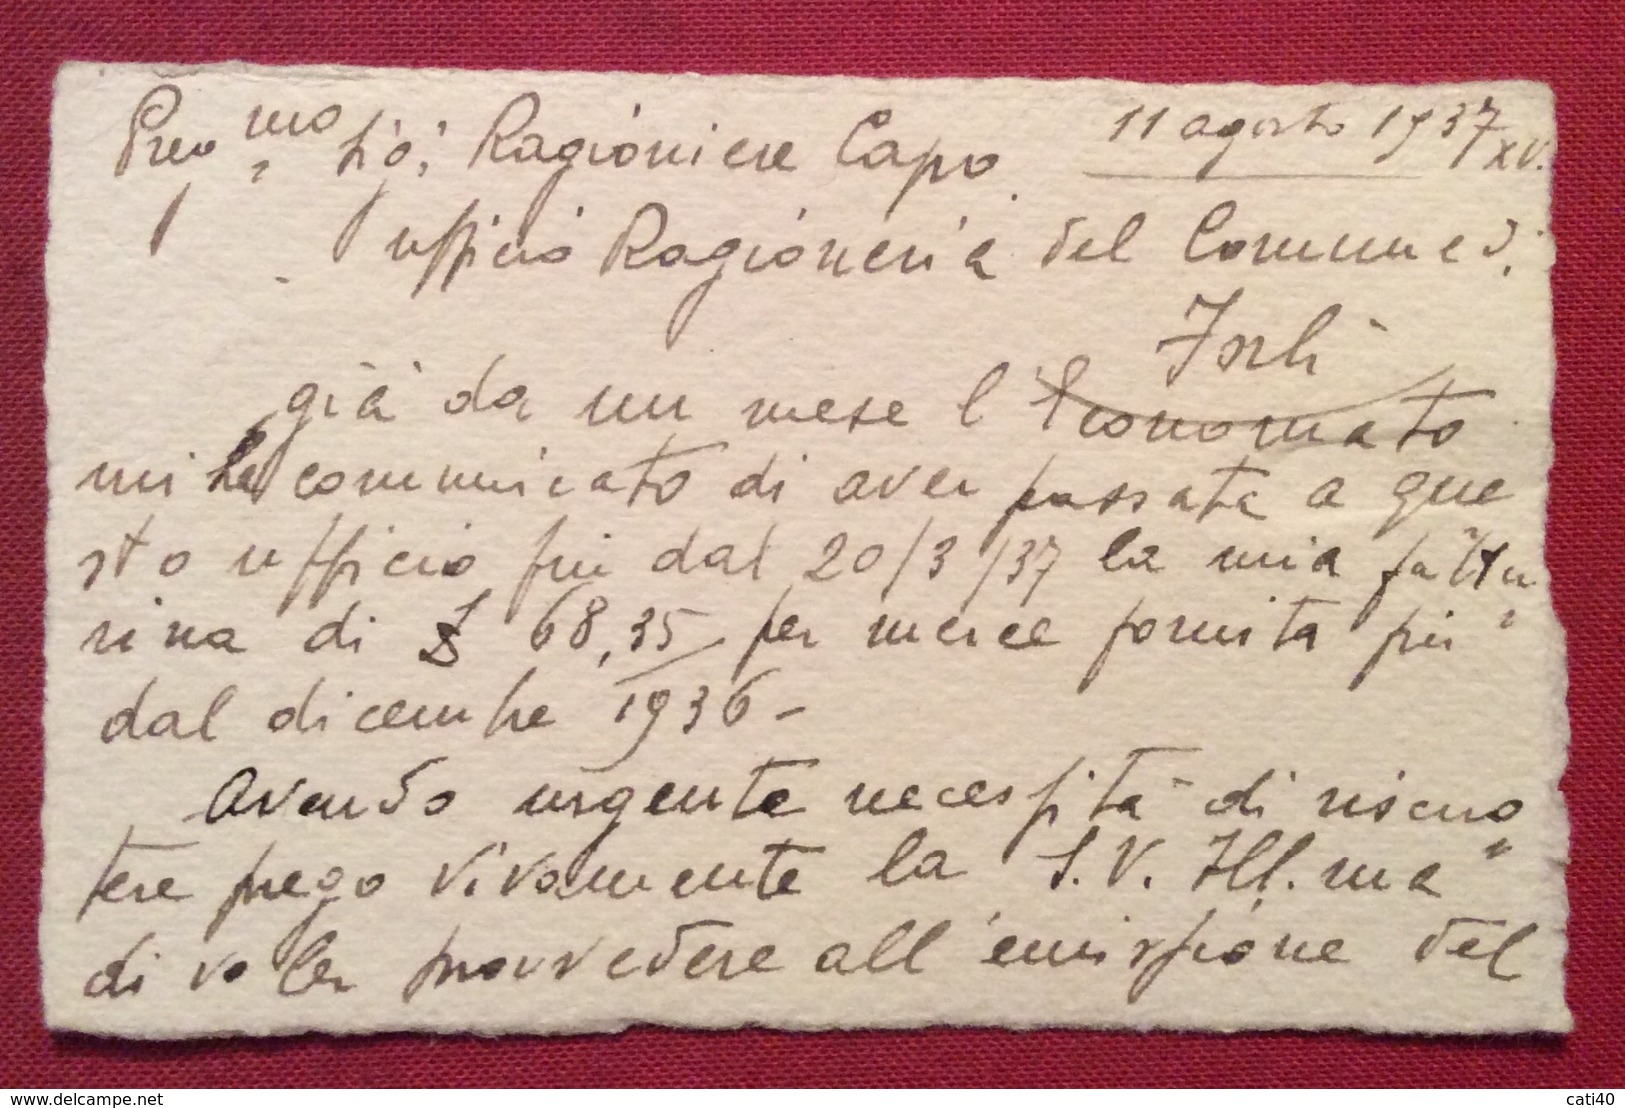 Preg.mo Sig. Ragioniere Capo 11 agosto 1937 XV.
ufficio Ragioneria del Comune di
Forlì
già da un mese l'Economato
mi ha communicato di aver passata a que
sto ufficio fin dal 20/3/37 la mia fattu
rina di £ 68,35 per merce fornita fin
dal dicembre 1936 -
Avendo urgente necessità di riscuo
tere prego vivamente la S.V. Ill.ma
di voler provvedere all'emissione del
www.delcampe.net
cati40